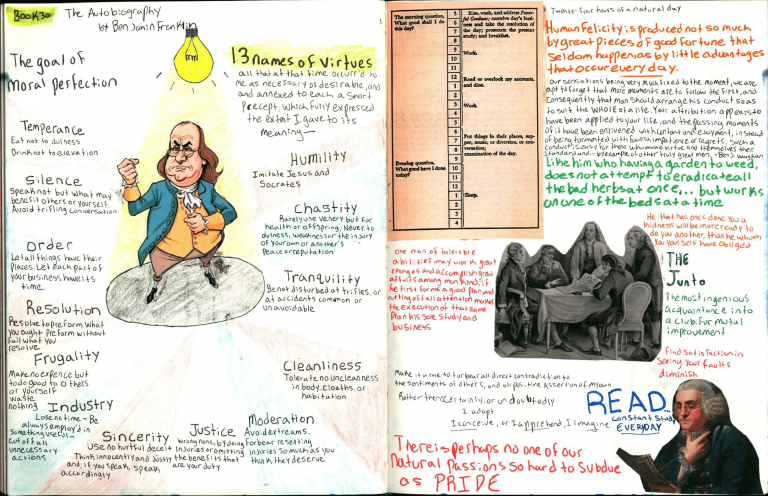 BOOK30
The Autobiography
by Benjamin Franklin
The goal of
Moral perfection
13 names of virtues
all that at that time occurr'd to
me as necessary or desirable, and
and annexed to each a short
precept, which fully expressed
the extent I gave to its
meaning—
Temperance
Eat not to dulness
Drink not to elevation
Silence
Speak not but what may
benefit others or yourself.
Avoid trifling conversation
Order
Let all things have their
places. Let each part of
your business have its
time.
Resolution
Resolve to preform what
you ought. Preform without
fail what you
resolve
Frugality
Make no expence but
to do good to others
or yourself
waste
nothing
Industry
Lose no time - Be
always employ'd in
something useful -
cut off all
unnecessary
actions
Sincerity
use no hurtful deceit
Think innocently and justly
and, if you speak, speak
accordingly
Justice
Wrong none, by doing
injuries or omitting
the benefits that
are your duty
Moderation
Avoid extreams.
Forbear resenting
injuries so much as you
think they deserve
Cleanliness
Tolerate no uncleanness
in body, cloaths, or
habitation
Tranquility
Be not disturbed at trifles, or
at accidents common or
unavoidable
Chastity
Rarely use venery but for
health or offspring; Never to
dulness, weakness or the injury
of your own or another's
Peace or reputation
Humility
Imitate Jesus and
Socrates
The morning question,
What good shall I do
this day?
5
6
7
8
9
10
11
12
1
2
3
4
5
6
7
8
9
10
11
12
1
2
3
4
Rise, wash, and address Powerful
Goodness; contrive day's business
and take the resolution of
the day; prosecute the present
study; and breakfast.
Work.
Read or overlook my accounts,
and dine.
Work.
Put things in their places, supper,
music, or diversion, or conversation;
examination of the day.
Evening question,
What good have I done
today?
Sleep.
Twenty-four hours of a natural day
Human Felicity is produced not so much
by great pieces of good fortune that
seldom happen as by little advantages
that occur every day.
Our sensations being very much fixed to the moment, we are
apt to forget that more moments are to follow the first, and
Consequently that man should arrange his conduct so as
to suit the whole of a life. Your attribution appears to
have been applied to your life, and the passing moments
of it have been enlivened with content and enjoyment, instead
of being tormented with foolish impatience or regrets. Such a
conduct is easy for those who make virtue and themselves their
standard and by example of other truly great men - Ben J Vaughan
Like him who having a garden to weed,
does not attempt to eradicate all
the bad herbs at once... but works
on one of the beds at a time
He that has once done you a
kindness will be more ready to
do you another, than he whom
you yourself have obliged
one man of tolerable
abilities may work great
changes and accomplish great
affairs among mankind, if
he first forms a good plan and
cutting off all attention makes
the execution of that same
plan his sole study and
business
THE
Junto
The most ingenious
acquaintance into
a club for mutal
improvement
Find satisfaction in
seeing your faults
diminish
Make it a rule to forbear all direct contradiction to
the sentiments of others, and all positive assertion of my own
Rather then certainly, or undoubtedly
I adopt
I conceive, or I apprehend, I imagine
READ...
constant study
EVERYDAY
There is perhaps no one of our
Natural Passions so hard to subdue
as PRIDE